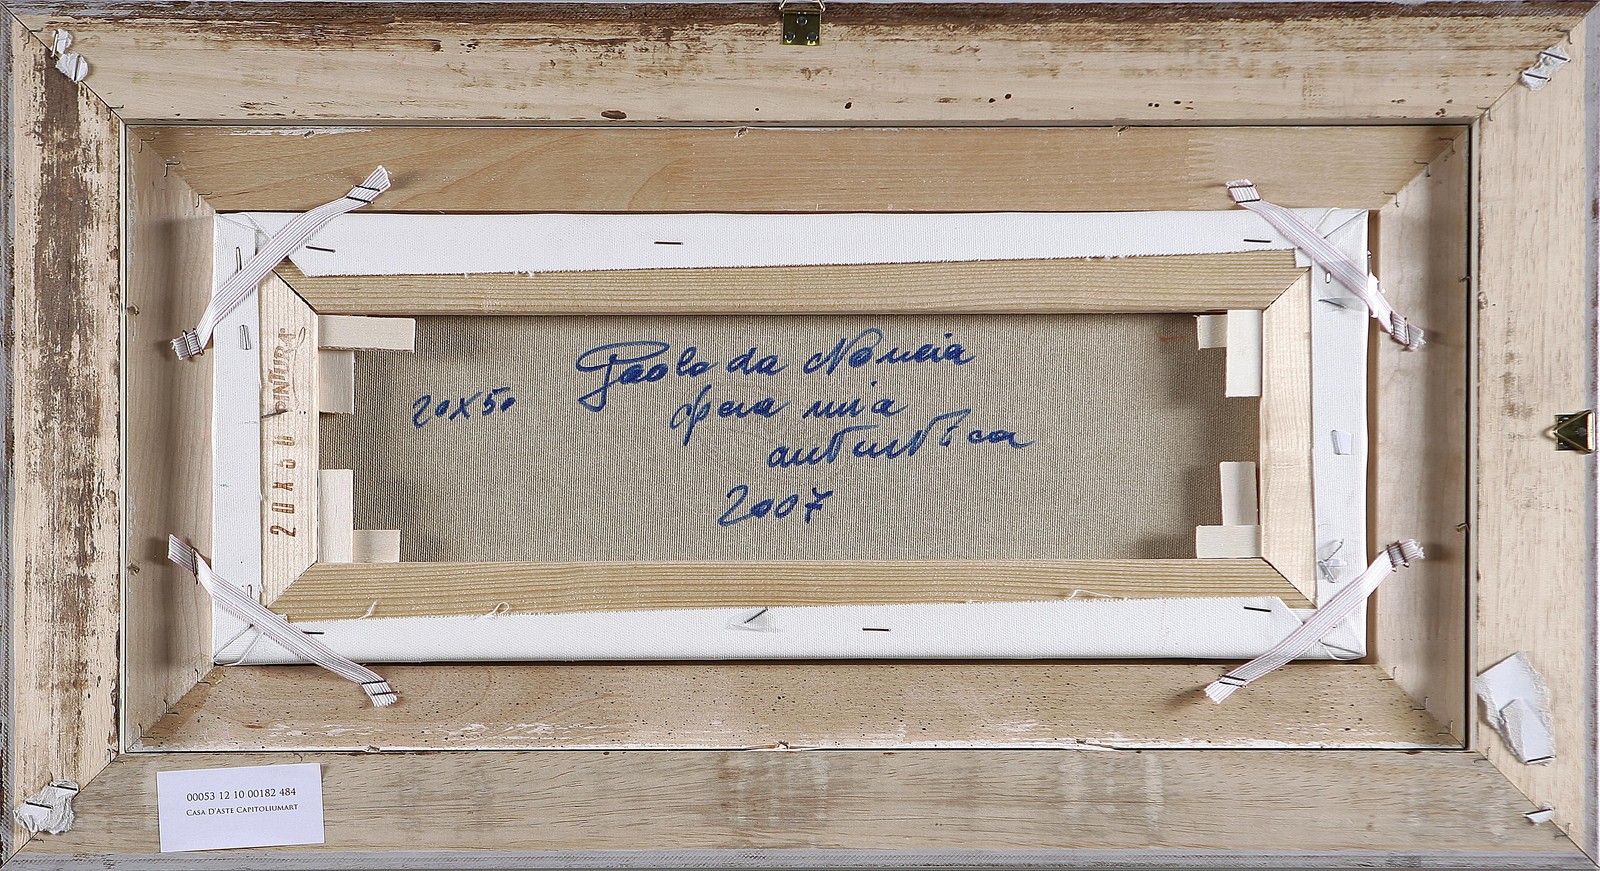 Paolo da Nancia
20x50
opera mia
autentica
2007
20X50
00053 12 10 00182 484
Casa D'Aste Capitoliumart